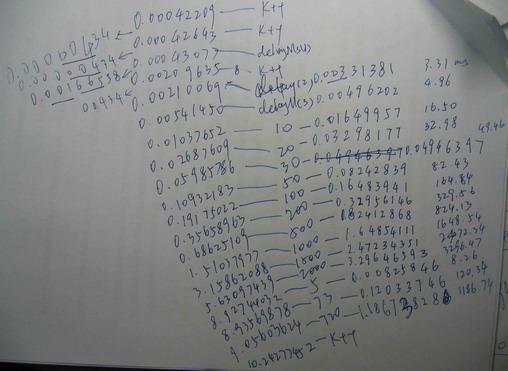 0.00042209 — K++
0.00042643 — K++
0.00043077 — delayMs(1)
0.00209635 — K++
0.00210069 — delay(2) 0.00331381 3.31 ms
0.00541450 delayMs(3) 0.00496202 4.96
0.01037652 — 10 — 0.01649957 16.50
0.02687609 — 20 — 0.03298177 32.98
0.05985786 — 30 — 0.04946397 0.04946397 49.46
0.10932183 — 50 — 0.08242839 82.43
0.19175022 — 100 — 0.16483941 164.84
0.35658963 — 200 — 0.32956146 329.56
0.68625109 — 500 — 0.82412868 824.13
1.51037977 — 1000 — 1.64854111 1648.54
3.15862088 — 1500 — 2.47234351 2472.34
5.63097439 — 2000 — 3.29646593 3296.47
8.92744032 — 5 — 0.00825846 8.26
8.93569878 — 73 — 0.12033746 120.34
9.05603624 — 720 — 1186.74
10.24277452 — K++